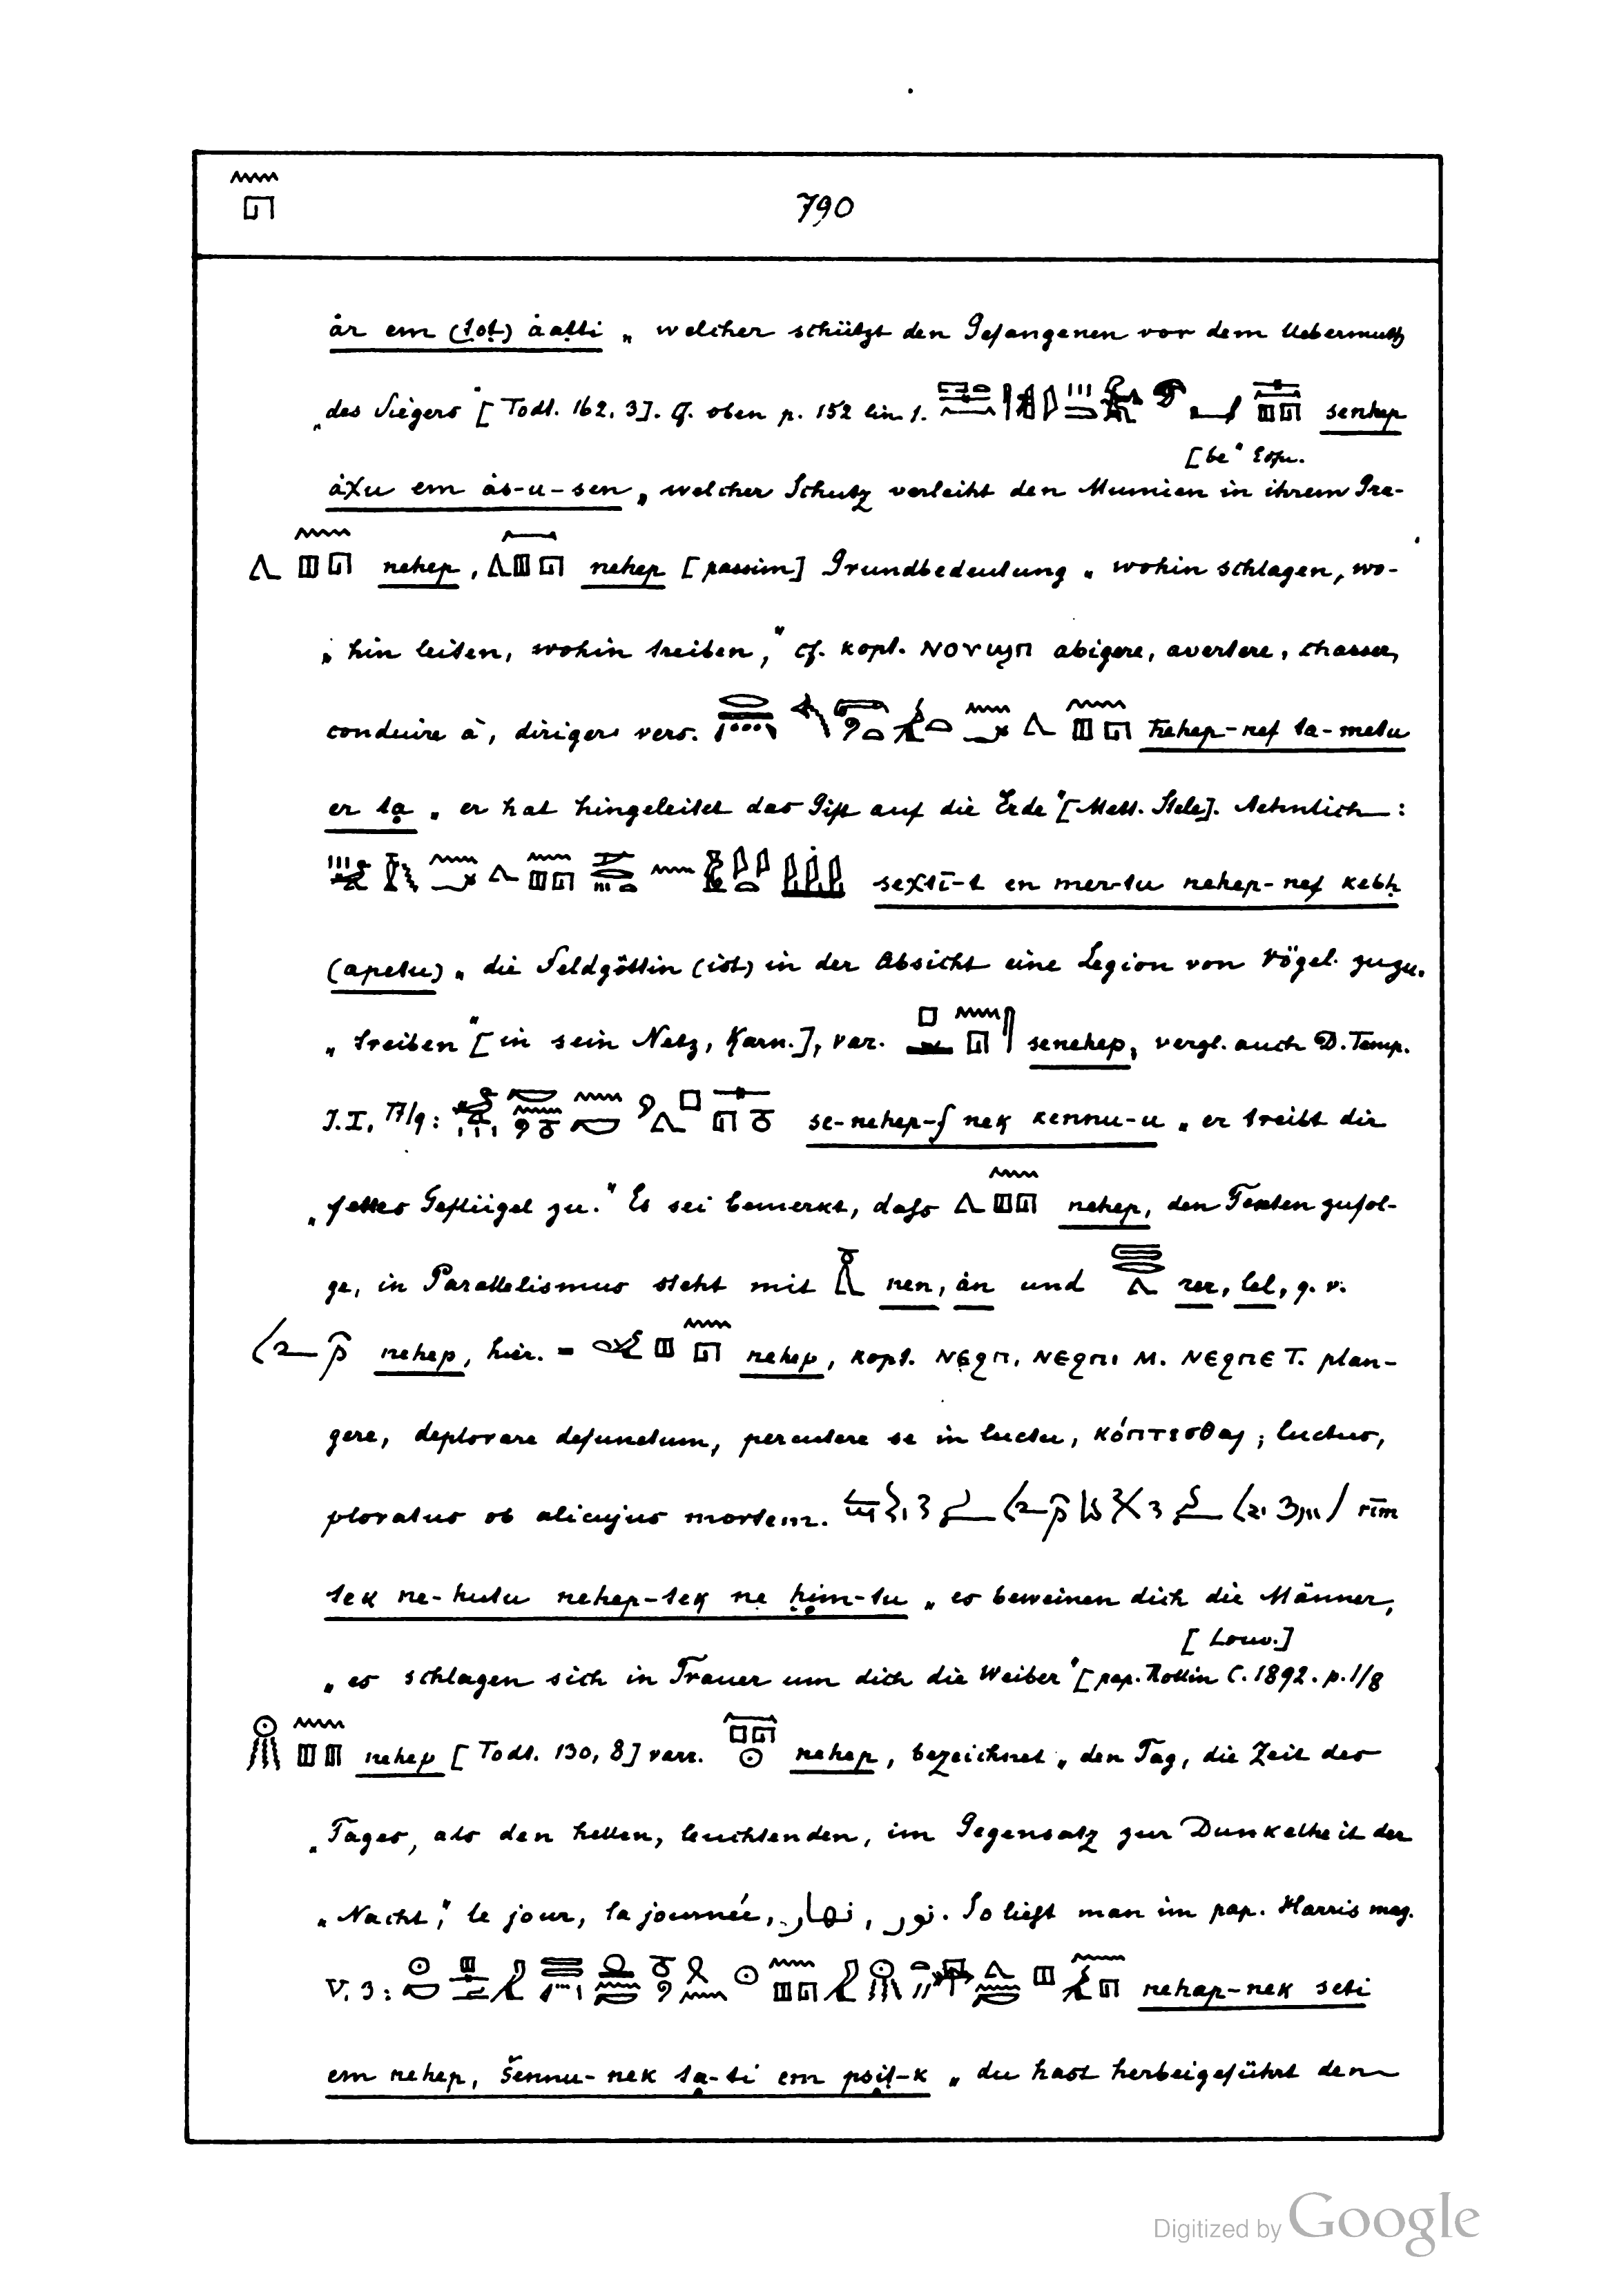 790
år em (ṭoṭ) åaṭti „ welcher schützt den Gefangenen vor dem Uebermuth
„des Siegers" [Todt. 162, 3]. Cf. oben p. 152 lin 1. senhep
[be" Esfu.
åχu em ås-u-sen „ welcher Schutz verleiht den Mumien in ihrem Gra-
nehep, nehep [passim] Grundbedeutung „ wohin schlagen, wo-
„ hin leiten, wohin treiben," cf. kopt. ⲛⲟⲩϣⲡ abigere, avertere, chasser,
conduire à, diriger vers. nehep-nef ta-metu
er ta „ er hat hingeleitet das Gift auf die Erde" [Mett. Stele]. Aehnlich:
seχtī-t en mer-tu nehep-nef kebḥ
(apetu) „ die Feldgöttin (ist) in der Absicht eine Legion von Vögel zuzu-
„ treiben" [in sein Netz, Karn.], var. senehep, vergl. auch D. Temp.
J.I, 77/9: se-nehep-f nek kennu-u „ er treibt dir
„ fettes Geflügel zu." Es sei bemerkt, dafs nehep, den Texten zufol-
ge, in Parallelismus steht mit nen, ån und rer, lel, q. v.
nehep, hier. = nehep, kopt. ⲛⲉϩⲡ, ⲛⲉϩⲡⲓ M. ⲛⲉϩⲡⲉ T. plan-
gere, deplorare defunctum, percutere se in luctu, κόπτεσθαι; luctus,
ploratus ob alicujus mortem. rīm
tek ne-hutu nehep-tek ne ḥim-tu „ es beweinen dich die Männer,
[Louv.]
„ es schlagen sich in Trauer um dich die Weiber" [pap. Rollin C. 1892. p. 1/8
nehep [Todt. 130, 8] varr. nehep, bezeichnet „ den Tag, die Zeit des
„Tages, als den hellen, leuchtenden, im Gegensatz zur Dunkelheit der
„ Nacht", le jour, la journée, نهار, نور. So liest man im pap. Harris mag.
V. 3: nehap-nek seti
em nehep, šennu-nek ta-ti em psiṭ-k „ du hast herbeigeführt den
Digitized by Google